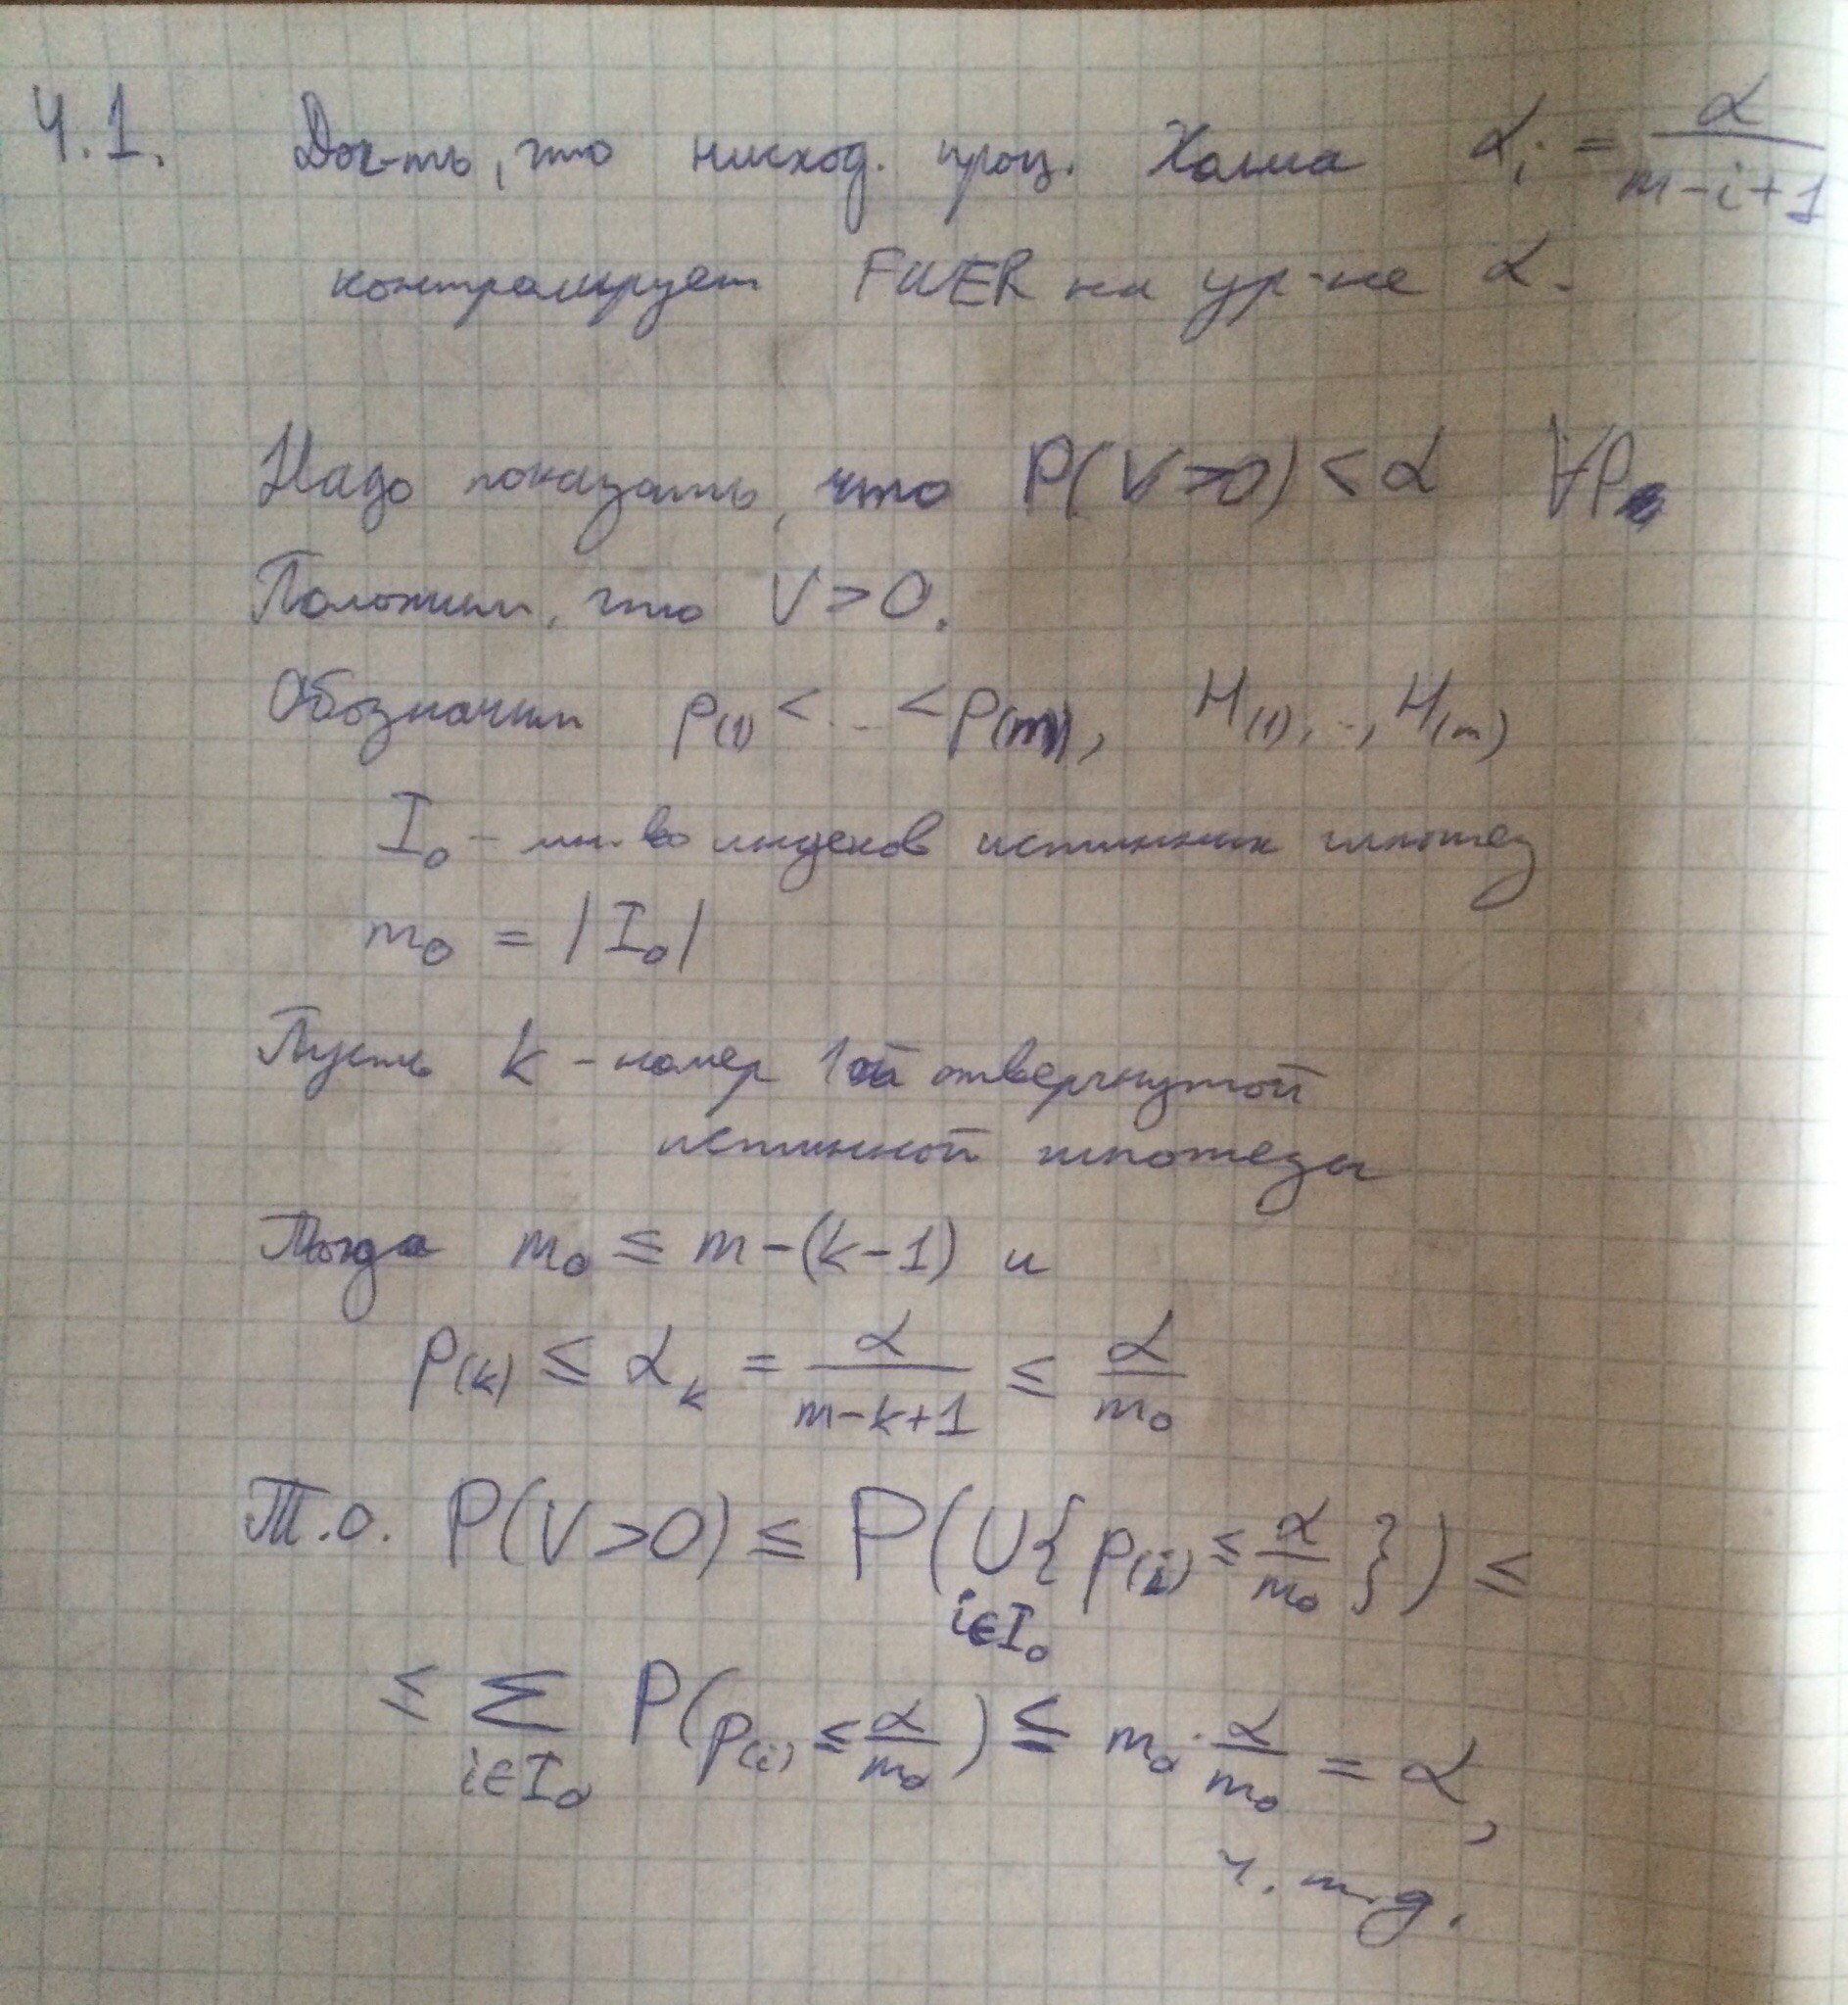 4.1. Док-ть, что нисход. проц. Холма α_i = α/(m-i+1)
контролирует FWER на ур-не α.
Надо показать, что P(V>0) < α ∀P
Положим, что V>0.
Обозначим p_(1) < ... < p_(m), H_(1), .., H_(m)
I_0 - мн-во индексов истинных гипотез
m_0 = |I_0|
Пусть k - номер 1ой отвергнутой
истинной гипотезы
Тогда m_0 ≤ m-(k-1) и
p_(k) ≤ α_k = α/(m-k+1) ≤ α/m_0
Т.о. P(V>0) ≤ P(∪_{i∈I_0} {p_(i) ≤ α/m_0}) ≤
≤ Σ_{i∈I_0} P(p_(i) ≤ α/m_0) ≤ m_0 · α/m_0 = α,
ч.т.д.